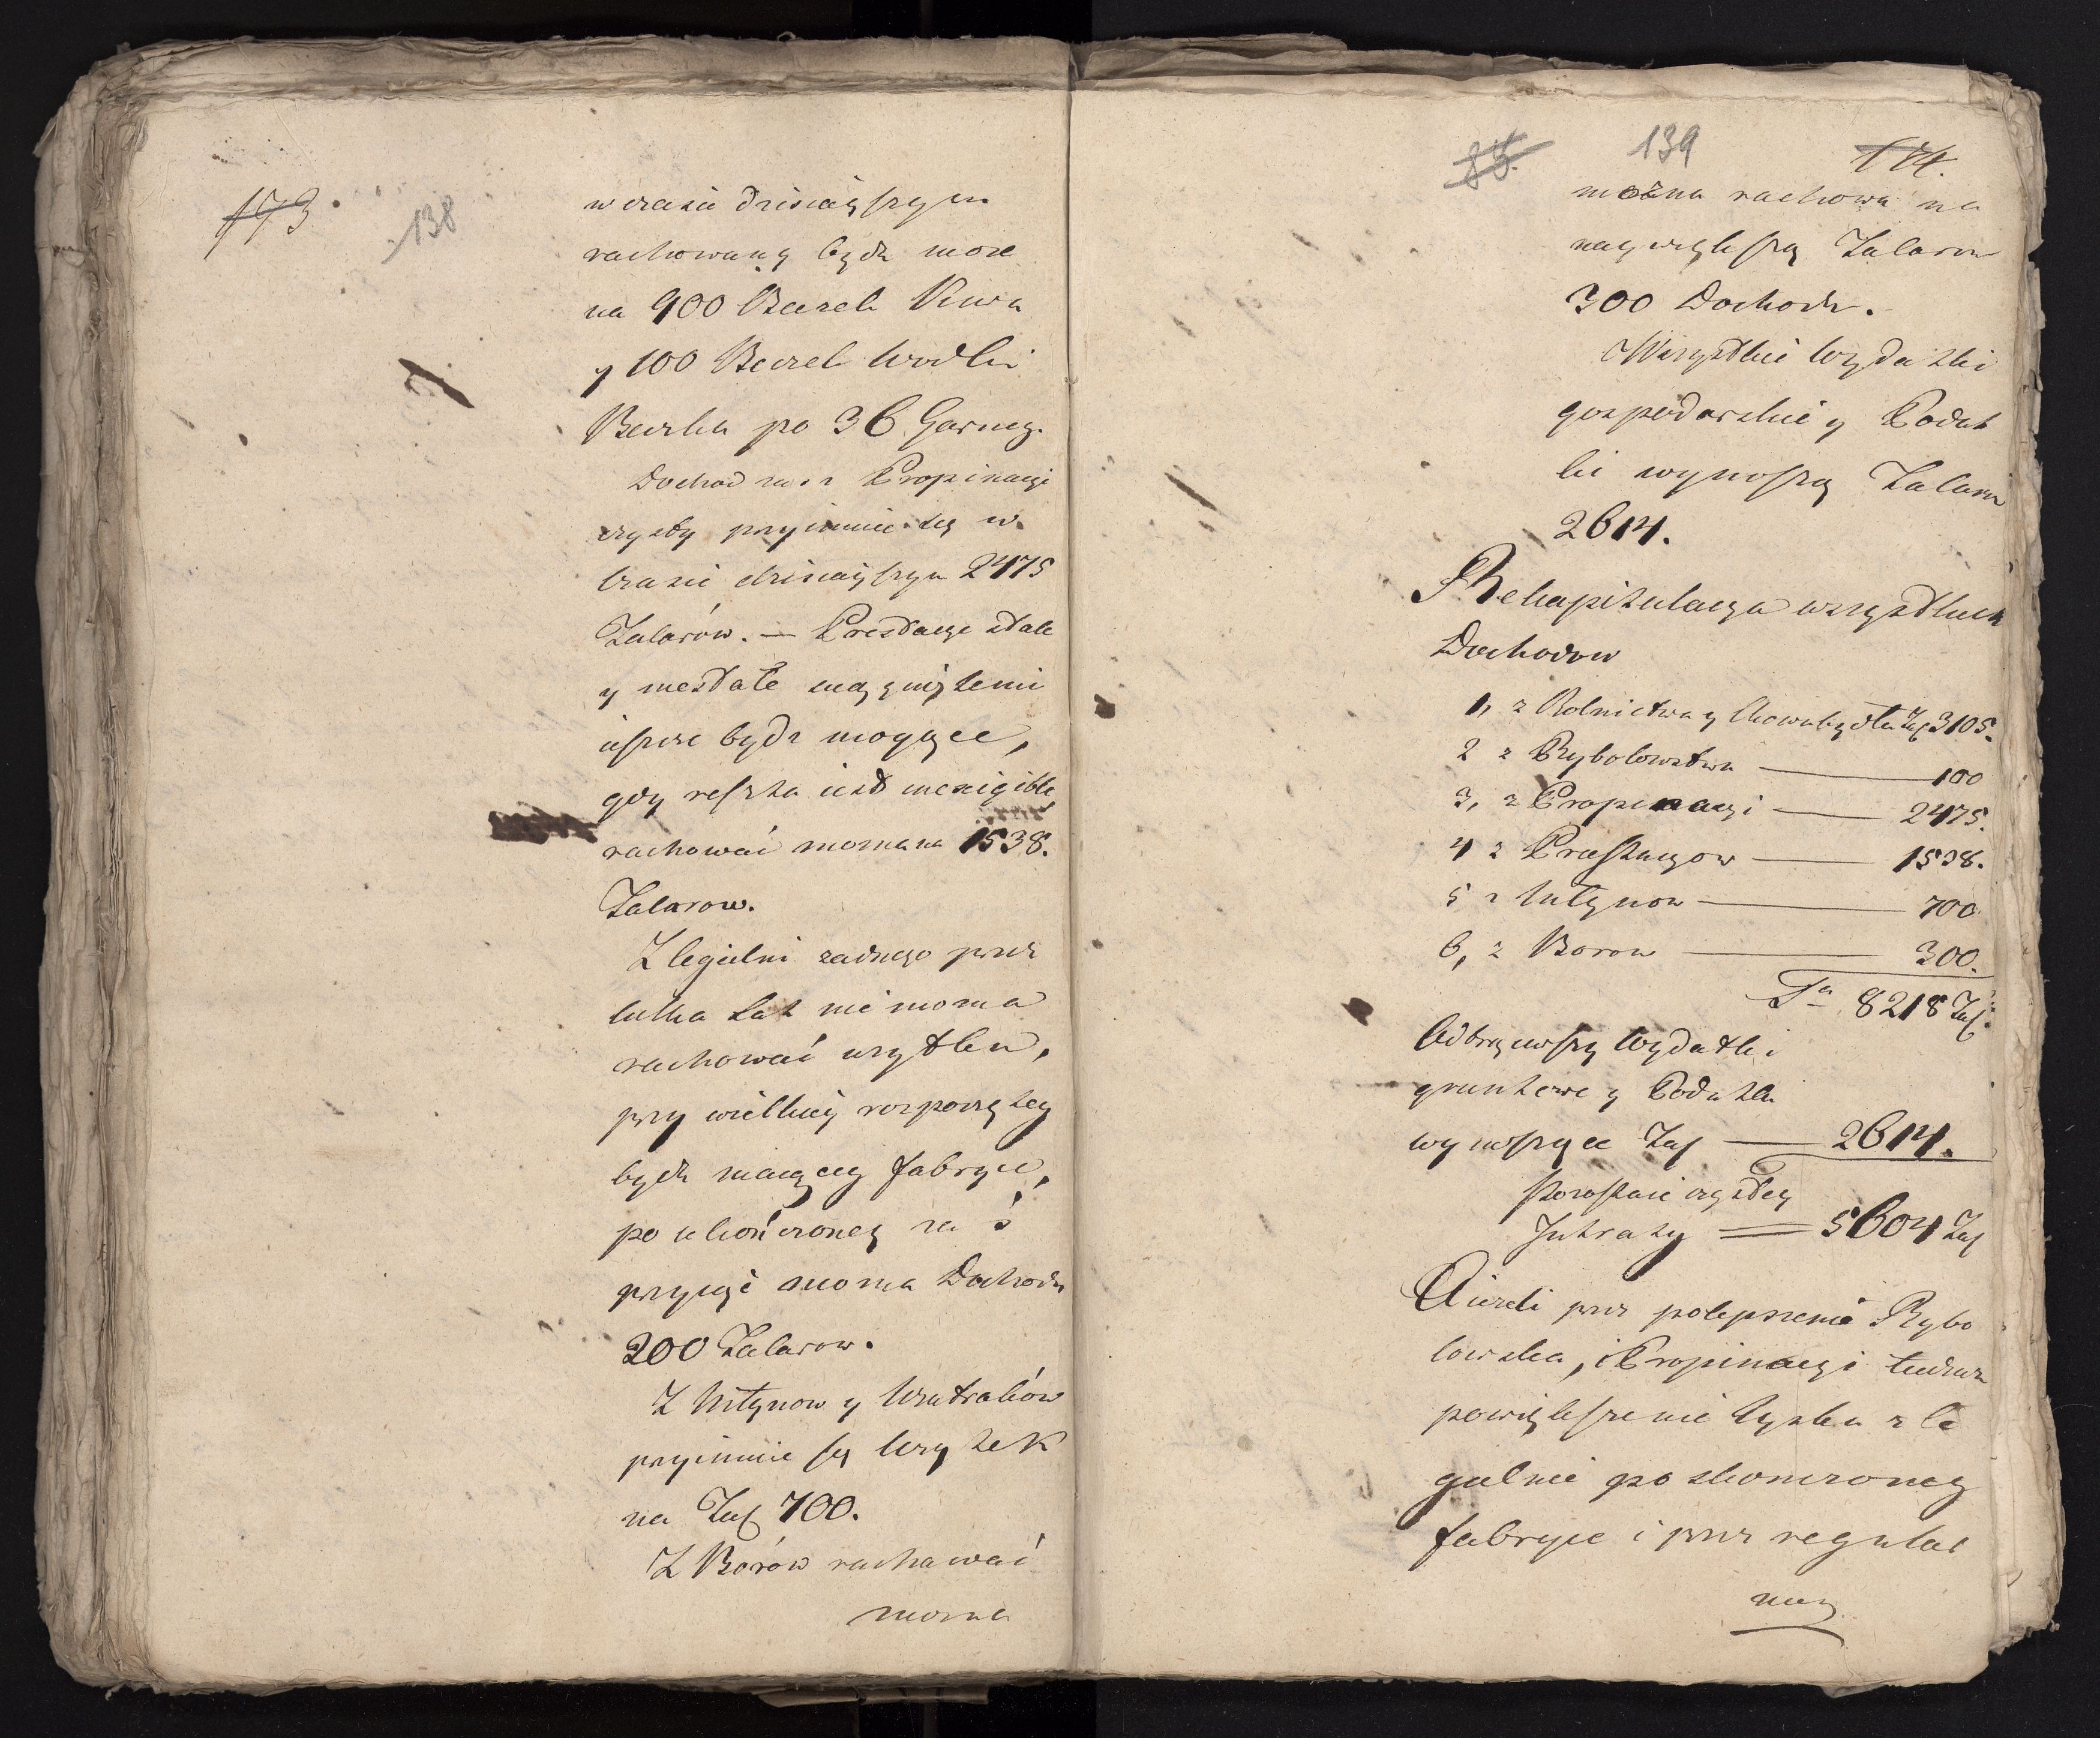 173.
138
w czasie dzisiayszym
rachowaną bydź może
na 900 Beczek Piwa
y 100 Beczek Wodki
Beczka po 36 Garncy.
Dochod zas z Propinacyi
czysty przyimuie się w
czasie dzisiayszym 2475
Talarów. — Prestacye stałe
y niestałe
bydź mogące,
gdy reszta iest inexigible,
rachować można na 1538.
Talarow.
Z Cegielni zadnego przez
kilka Lat nie można
rachować uzytku,
przy wielkiey rozpoczętey
bydź maiącey fabryce,
po ukończoney zaś
przyiąć można Dochodu
200 Talarow.
Z Młynow y Wiatraków
przyimuie się Uzytek
na Tal 700.
Z Borów rachować
można
85.
139
174.
można rachowa na
naywyższą Talarow
300 Dochodu.
Wszystkie Wydatki
gospodarskie y Podat
ki wynoszą Talarow
2614.
Rekapitulacya wszystkich
Dochodow
1, z Rolnictwa y Chowu bydła Tal 3105.
2 z Rybołowstwa — 100
3, z Propinacyi — 2475.
4 z Prestacyow — 1538.
5 z Młynow — 700
6, z Borow — 300.
Sa 8218 Tal.
Odtrąciwszy Wydatki
gruntowe y Podatki
wynoszące Tal — 2614.
Pozostaie czystey
Intraty = 5604 Tal
A ieżeli przez polepszenie Rybo
łowstwa, i Propinacyi tudzież
powiększenie Zysku z Ce
gielnie po skonczoney
fabryce i przez regular
ney